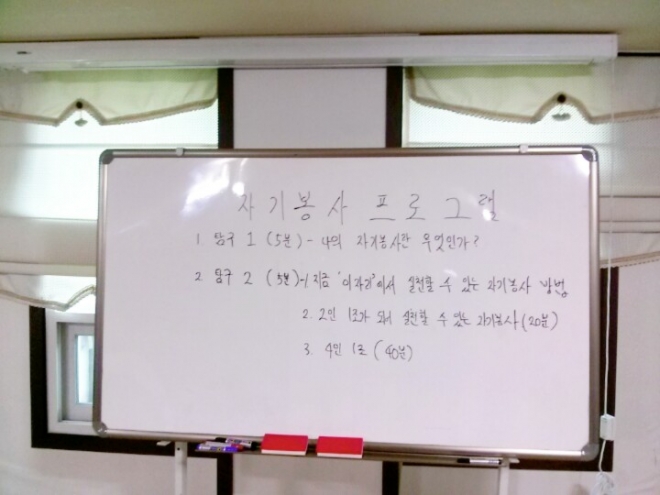 자기봉사 프로그램
1. 탐구 1 (5분) - 나의 자기봉사란 무엇인가?
2. 탐구 2 (5분) - 1. 지금 '이자리'에서 실천할 수 있는 자기봉사 방법
2. 2인 1조가 되어 실천할 수 있는 자기봉사 (20분)
3. 4인 1조 (40분)